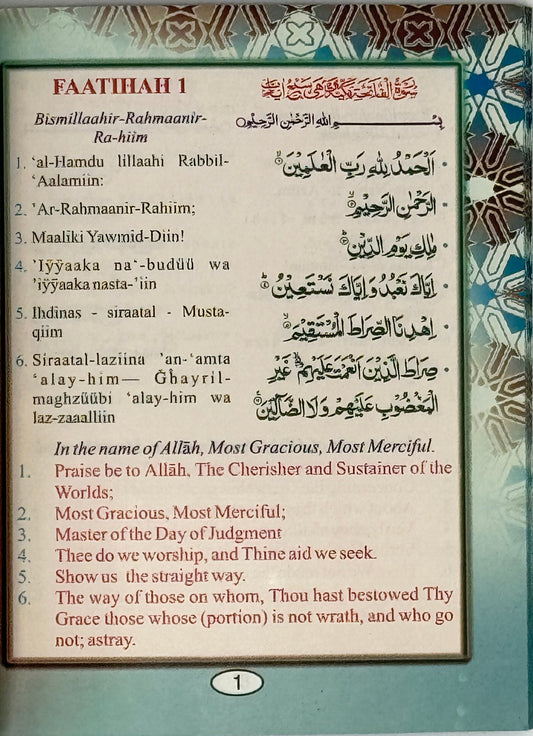 FAATIHAH 1
Bismillaahir-Rahmaanir-
Ra-hiim
1. ’al-Hamdu lillaahi Rabbil-
‘Aalamiin:
2. ’Ar-Rahmaanir-Rahiim;
3. Maaliki Yawmid-Diin!
4. ’Iÿÿaaka na‘-budüü wa
’iÿÿaaka nasta-’iin
5. Ihdinas - siraatal - Musta-
qiim
6. Siraatal-laziina ’an-‘amta
‘alay-him— Ğhayril-
maghzüübi ‘alay-him wa
laz-zaaalliin
بِسْمِ اللهِ الرَّحْمٰنِ الرَّحِيْمِ
اَلْحَمْدُ لِلّٰهِ رَبِّ الْعٰلَمِيْنَ ①
الرَّحْمٰنِ الرَّحِيْمِ ②
مٰلِكِ يَوْمِ الدِّيْنِ ③
اِيَّاكَ نَعْبُدُ وَ اِيَّاكَ نَسْتَعِيْنُ ④
اِهْدِنَا الصِّرَاطَ الْمُسْتَقِيْمَ ⑤
صِرَاطَ الَّذِيْنَ اَنْعَمْتَ عَلَيْهِمْ ⑥ غَيْرِ
الْمَغْضُوْبِ عَلَيْهِمْ وَلَا الضَّآلِّيْنَ ⑦
In the name of Allāh, Most Gracious, Most Merciful.
1. Praise be to Allāh, The Cherisher and Sustainer of the
Worlds;
2. Most Gracious, Most Merciful;
3. Master of the Day of Judgment
4. Thee do we worship, and Thine aid we seek.
5. Show us the straight way.
6. The way of those on whom, Thou hast bestowed Thy
Grace those whose (portion) is not wrath, and who go
not; astray.
1